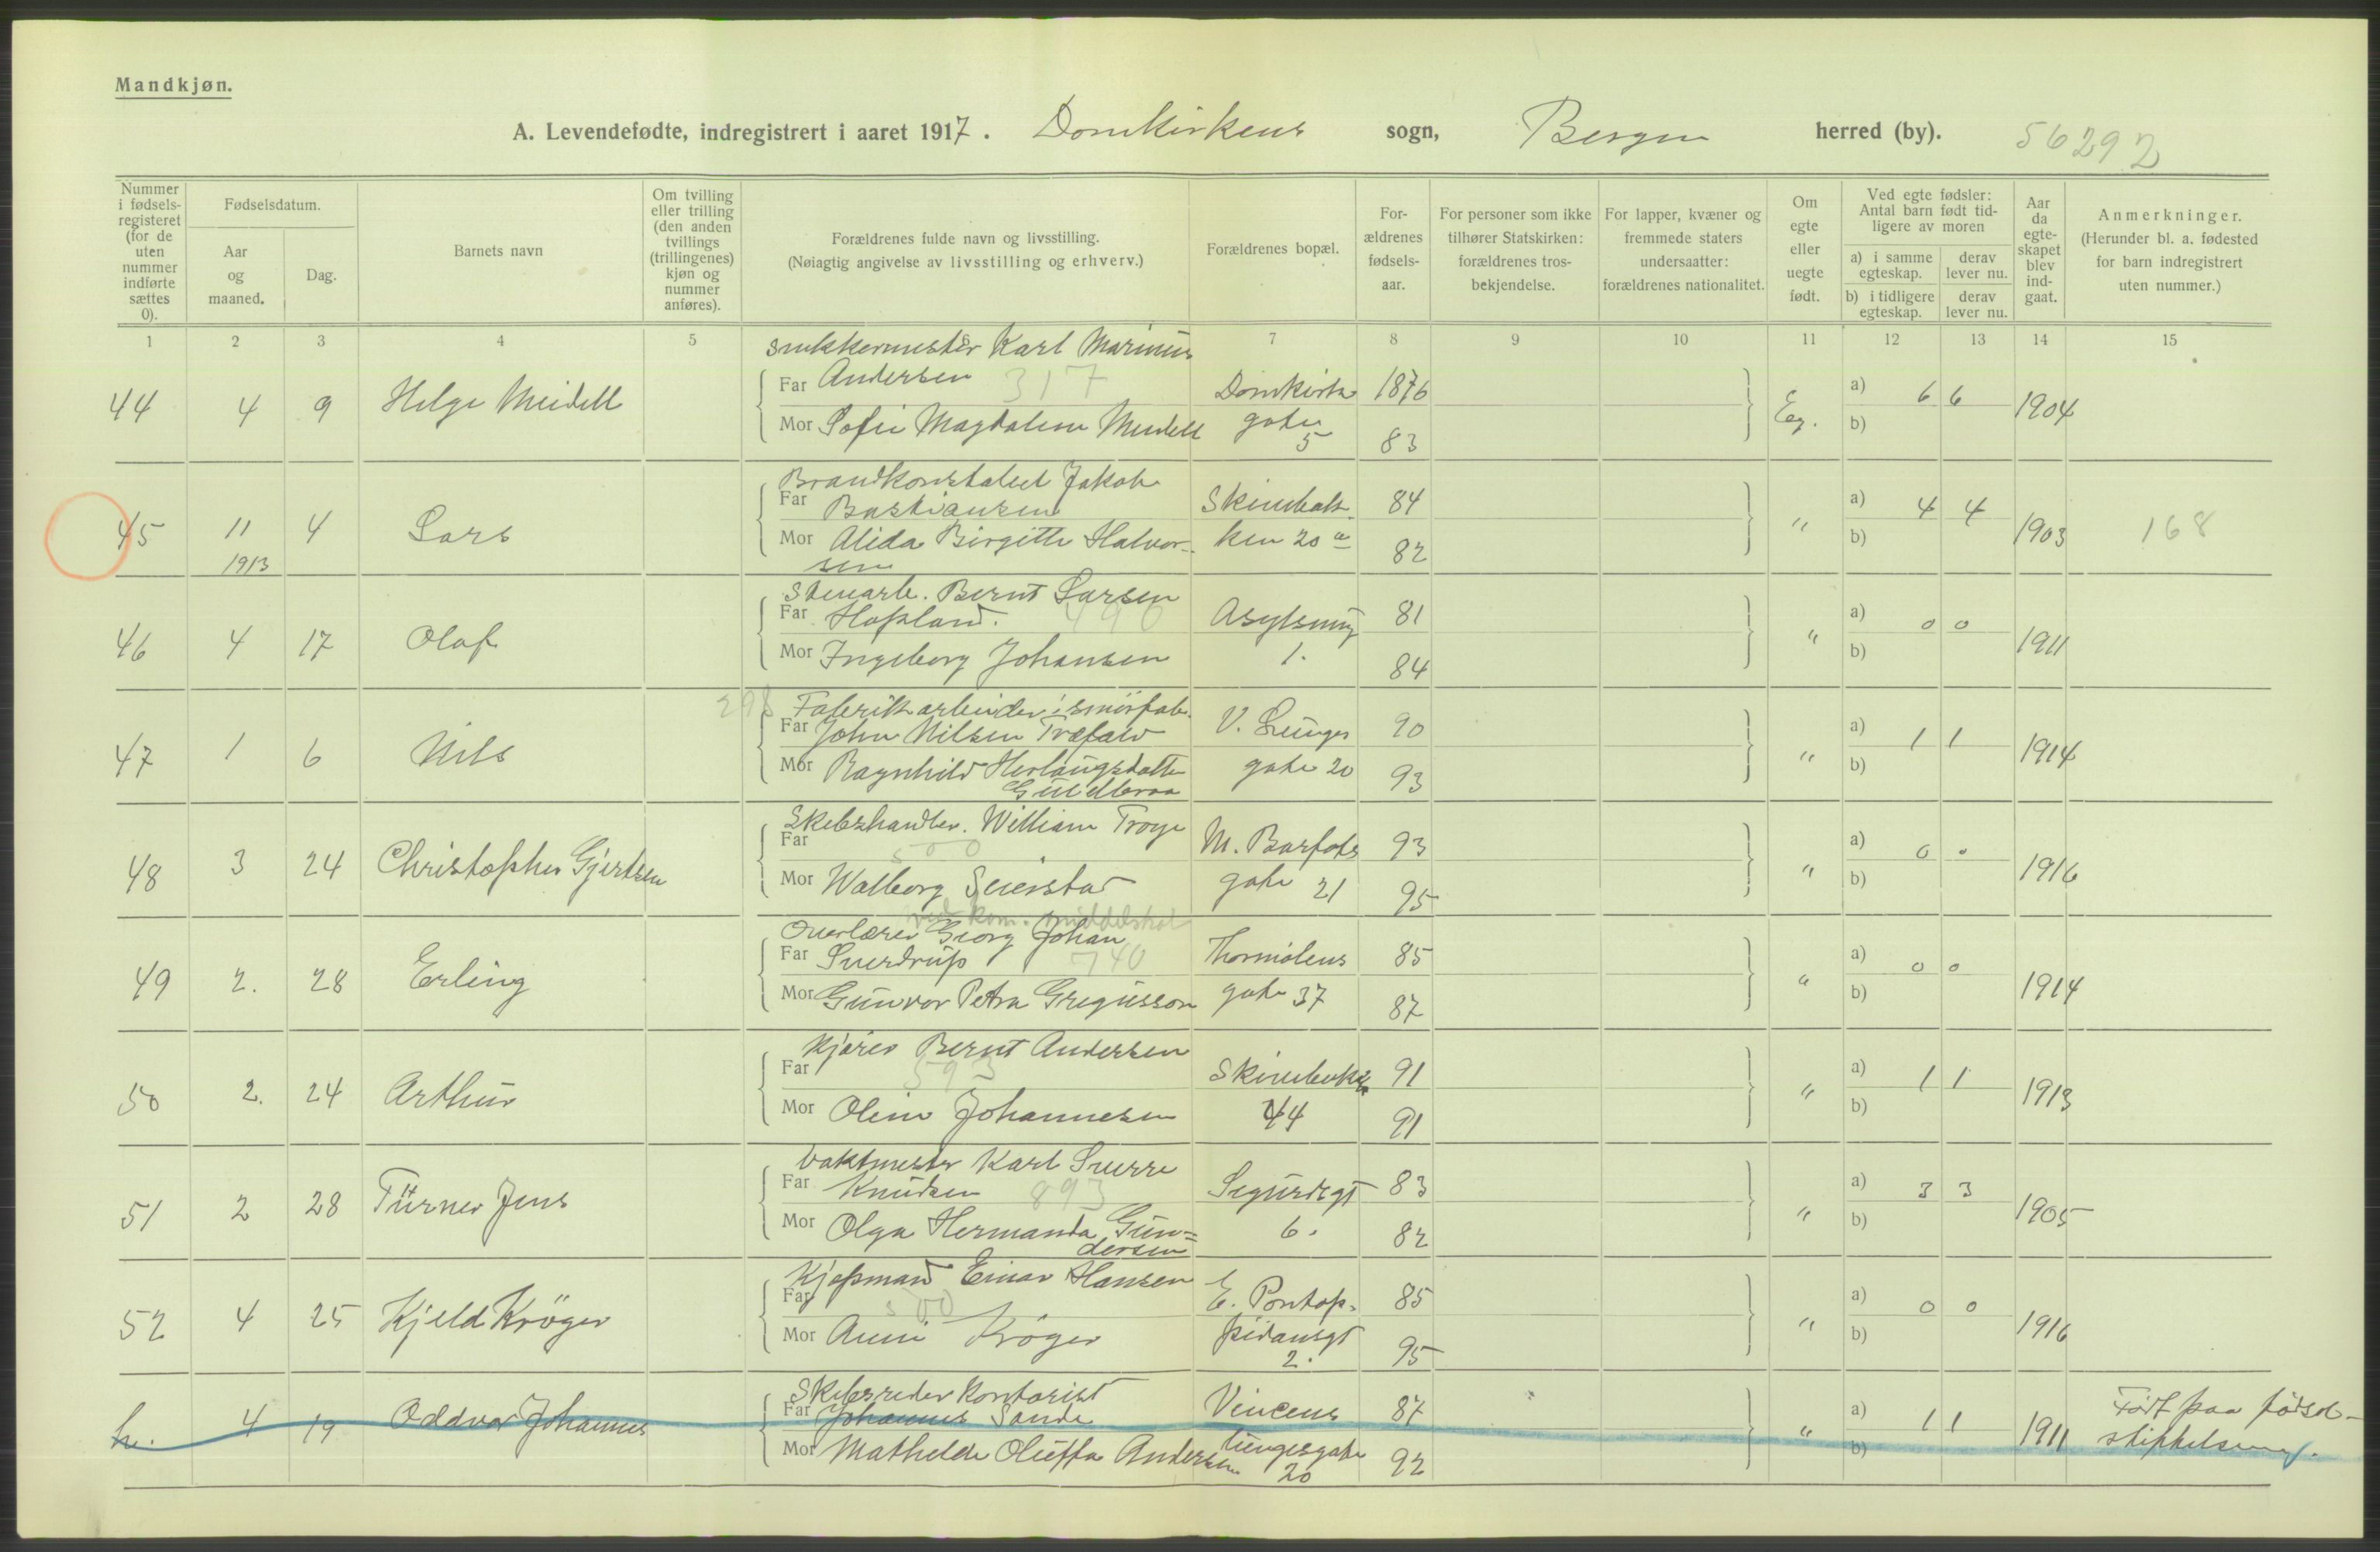 Mandkjøn.
A. Levendefødte, indregistrert i aaret 1917. Domkirkens sogn, Bergen herred (by). 56292
Nummer i fødselsregisteret (for de uten nummer indførte sættes 0).
Fødselsdatum.
Aar og maaned.
Dag.
Barnets navn
Om tvilling eller trilling (den anden tvillings (trillingenes) kjøn og nummer anføres).
Forældrenes fulde navn og livsstilling. (Nøiagtig angivelse av livsstilling og erhverv.)
Forældrenes bopæl.
Forældrenes fødselsaar.
For personer som ikke tilhører Statskirken: forældrenes trosbekjendelse.
For lapper, kvæner og fremmede staters undersaatter: forældrenes nationalitet.
Om egte eller uegte født.
Ved egte fødsler: Antal barn født tidligere av moren
a) i samme egteskap. derav lever nu.
b) i tidligere egteskap. derav lever nu.
Aar da egteskapet blev indgaat.
Anmerkninger. (Herunder bl. a. fødested for barn indregistrert uten nummer.)
1 2 3 4 5 6 7 8 9 10 11 12 13 14 15
snekkermester Karl Marinus
44 4 9 Helge Meidell Far Andersen 317 Domkirke 1876 Eg. a) 6 6 1904
Mor Sofie Magdalene Meidell gaten 5 83 b)
Brandkonstabel Jakob
45 11 1913 4 Lars Far Bastiansen Skivebak 84 " a) 4 4 1903 168
Mor Alida Birgitte Halvorsen ken 20 a 82 b)
Stenarb. Bernt Larsen
46 4 17 Olaf Far Hopland. 490 Asylsmug 81 " a) 0 0 1911
Mor Ingeborg Johansen 1. 84 b)
298 Fabrikarbeider i smørfab.
47 1 6 Nils Far John Nilsen Træfald V. Lunges 90 " a) 1 1 1914
Mor Ragnhild Herlaugsdatter gate 20 93 b)
Skibshandler. William Troye
48 3 24 Christopher Gjertsen Far 500 M. Barfots 93 " a) 0 0 1916
Mor Walborg Seierstad gate 21 95 b)
ved kom. middelskol
Overlærer Georg Johan
49 2. 28 Erling Far Sverdrup 740 Thormølens 85 " a) 0 0 1914
Mor Gunvor Petra Gregusson gate 37 87 b)
Kjører Bernt Andersen
50 2. 24 Arthur Far 593 Skivebakken 91 " a) 1 1 1913
Mor Oline Johannesen 44 91 b)
Vaktmester Karl Sverre
51 2 28 Türner Jens Far Knudsen 893 Sigurdsgt 83 " a) 3 3 1905
Mor Olga Hermanda Gundersen 6. 82 b)
Kjøpmand Einar Hansen
52 4 25 Kjeld Krøger Far 500 E. Pontop- 85 " a) 0 0 1916
Mor Anni Krøger pidansgt 2. 95 b)
Skibsreder kontorist
h. 4 19 Oddvar Johannes Far Johannes Sande Vincens 87 " a) 1 1 1911 Født paa fødsels-
Mor Mathilde Oluffa Andersen lungesgate 20 92 b) stiftelsen.